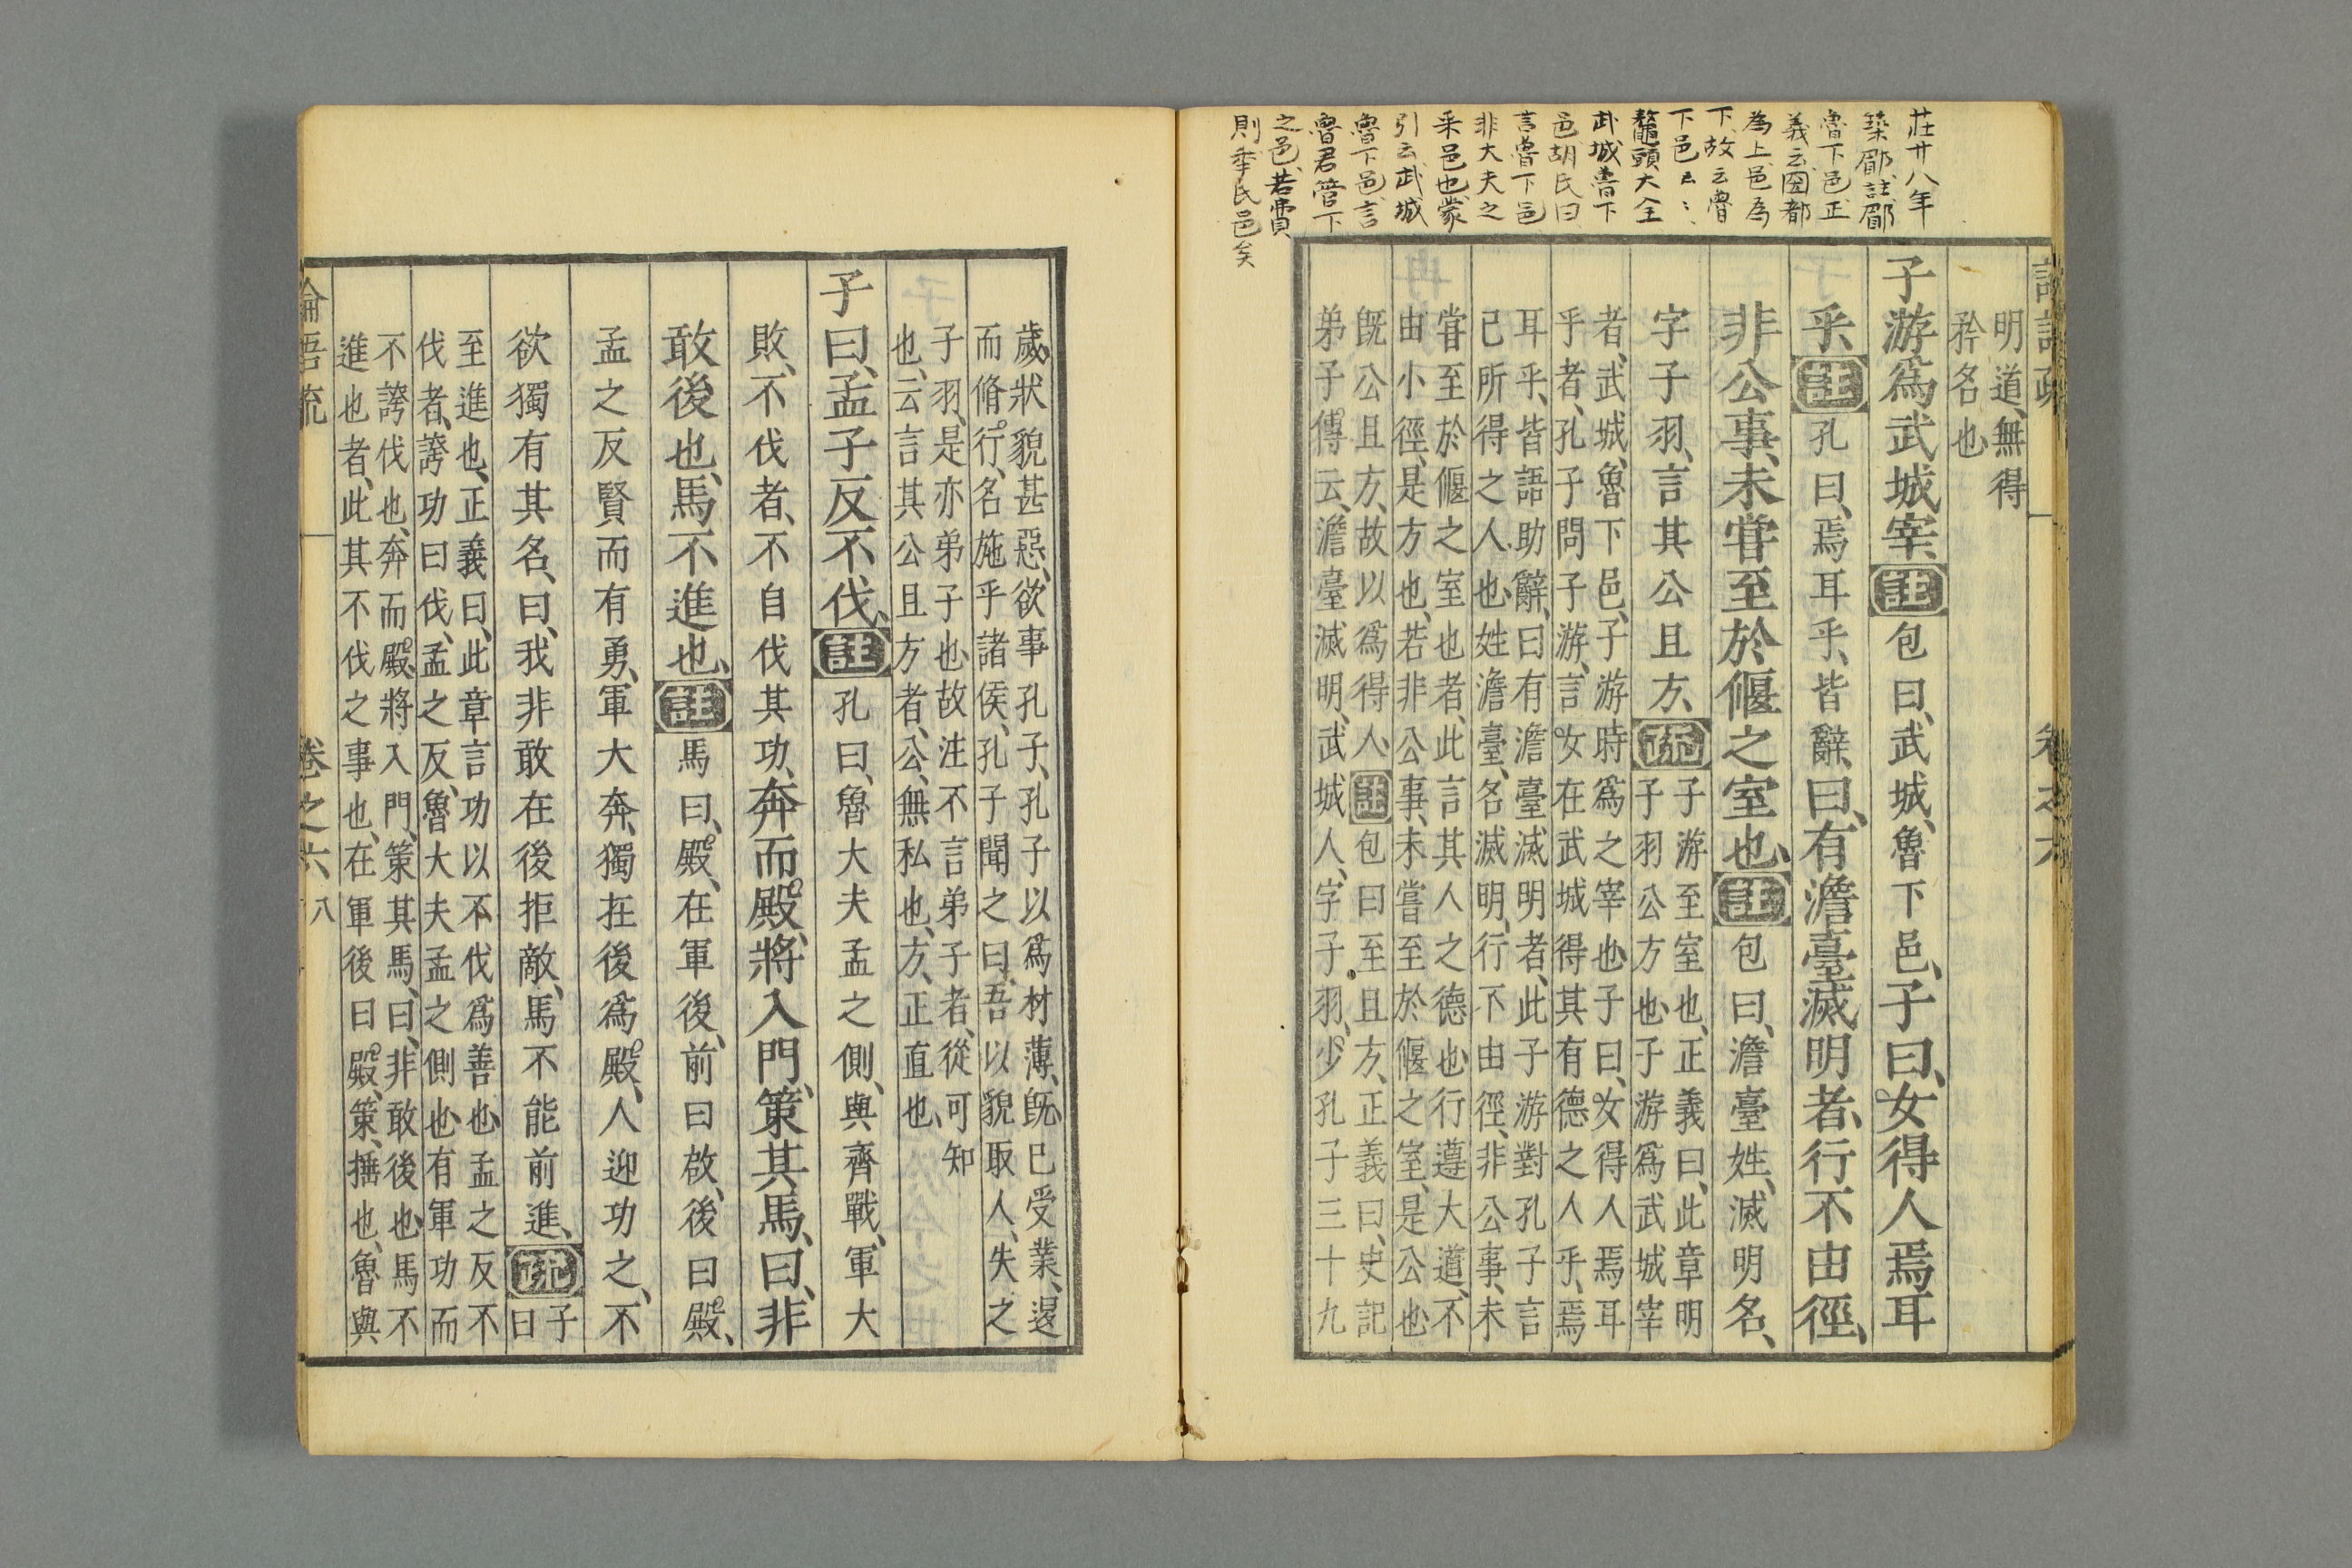 莊廿八年
築郿、註、郿
魯下邑、正
義云、國都
為上、邑為
下、故云魯
下邑云〻
鼇頭大全
武城魯下
邑、胡氏曰
言魯下邑
非大夫之
采邑也、蒙
引云武城
魯下邑、言
魯君管下
之邑、若費
則季氏邑矣
明道、無得
矜名也
子游爲武城宰、註包曰、武城、魯下邑、子曰、女得人焉耳
乎、註孔曰、焉耳乎、皆辭、曰、有澹臺滅明者、行不由徑、
非公事、未嘗至於偃之室也、註包曰、澹臺姓、滅明名、
字子羽、言其公且方、疏子游至室也、正義曰、此章明
子羽公方也、子游爲武城宰
者、武城、魯下邑、子游時爲之宰也、子曰、女得人焉耳
乎者、孔子問子游、言女在武城得其有德之人乎、焉
耳乎、皆語助辭、曰有澹臺滅明者、此子游對孔子言
己所得之人也、姓澹臺、名滅明、行不由徑、非公事、未
嘗至於偃之室也者、此言其人之德也、行遵大道、不
由小徑、是方也、若非公事、未嘗至於偃之室、是公也
旣公且方、故以爲得人、註包曰至且方、正義曰、史記
弟子傳云、澹臺滅明、武城人、字子羽、少孔子三十九
歲、狀貌甚惡、欲事孔子、孔子以爲材薄、旣已受業、退
而脩行、名施乎諸侯、孔子聞之曰、吾以貌取人、失之
子羽、是亦弟子也、故注不言弟子者、從可知
也、云言其公且方者、公、無私也、方、正直也、
子曰、孟子反不伐、註孔曰、魯大夫孟之側、與齊戰、軍大
敗、不伐者、不自伐其功、奔而殿、將入門、策其馬、曰、非
敢後也、馬不進也、註馬曰、殿、在軍後、前曰啟、後曰殿、
孟之反賢而有勇、軍大奔、獨在後爲殿、人迎功之、不
欲獨有其名、曰、我非敢在後拒敵、馬不能前進、疏子
曰
至進也、正義曰、此章言功以不伐爲善也、孟之反不
伐者、誇功曰伐、孟之反、魯大夫孟之側也、有軍功而
不誇伐也、奔而殿、將入門、策其馬、曰、非敢後也、馬不
進也者、此其不伐之事也、在軍後曰殿、策、捶也、魯與
卷之六
八